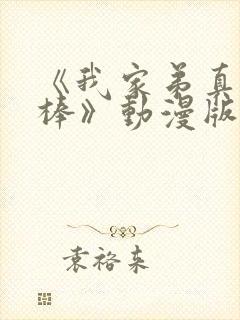 《我家弟真
棒》動漫版
袁裕东